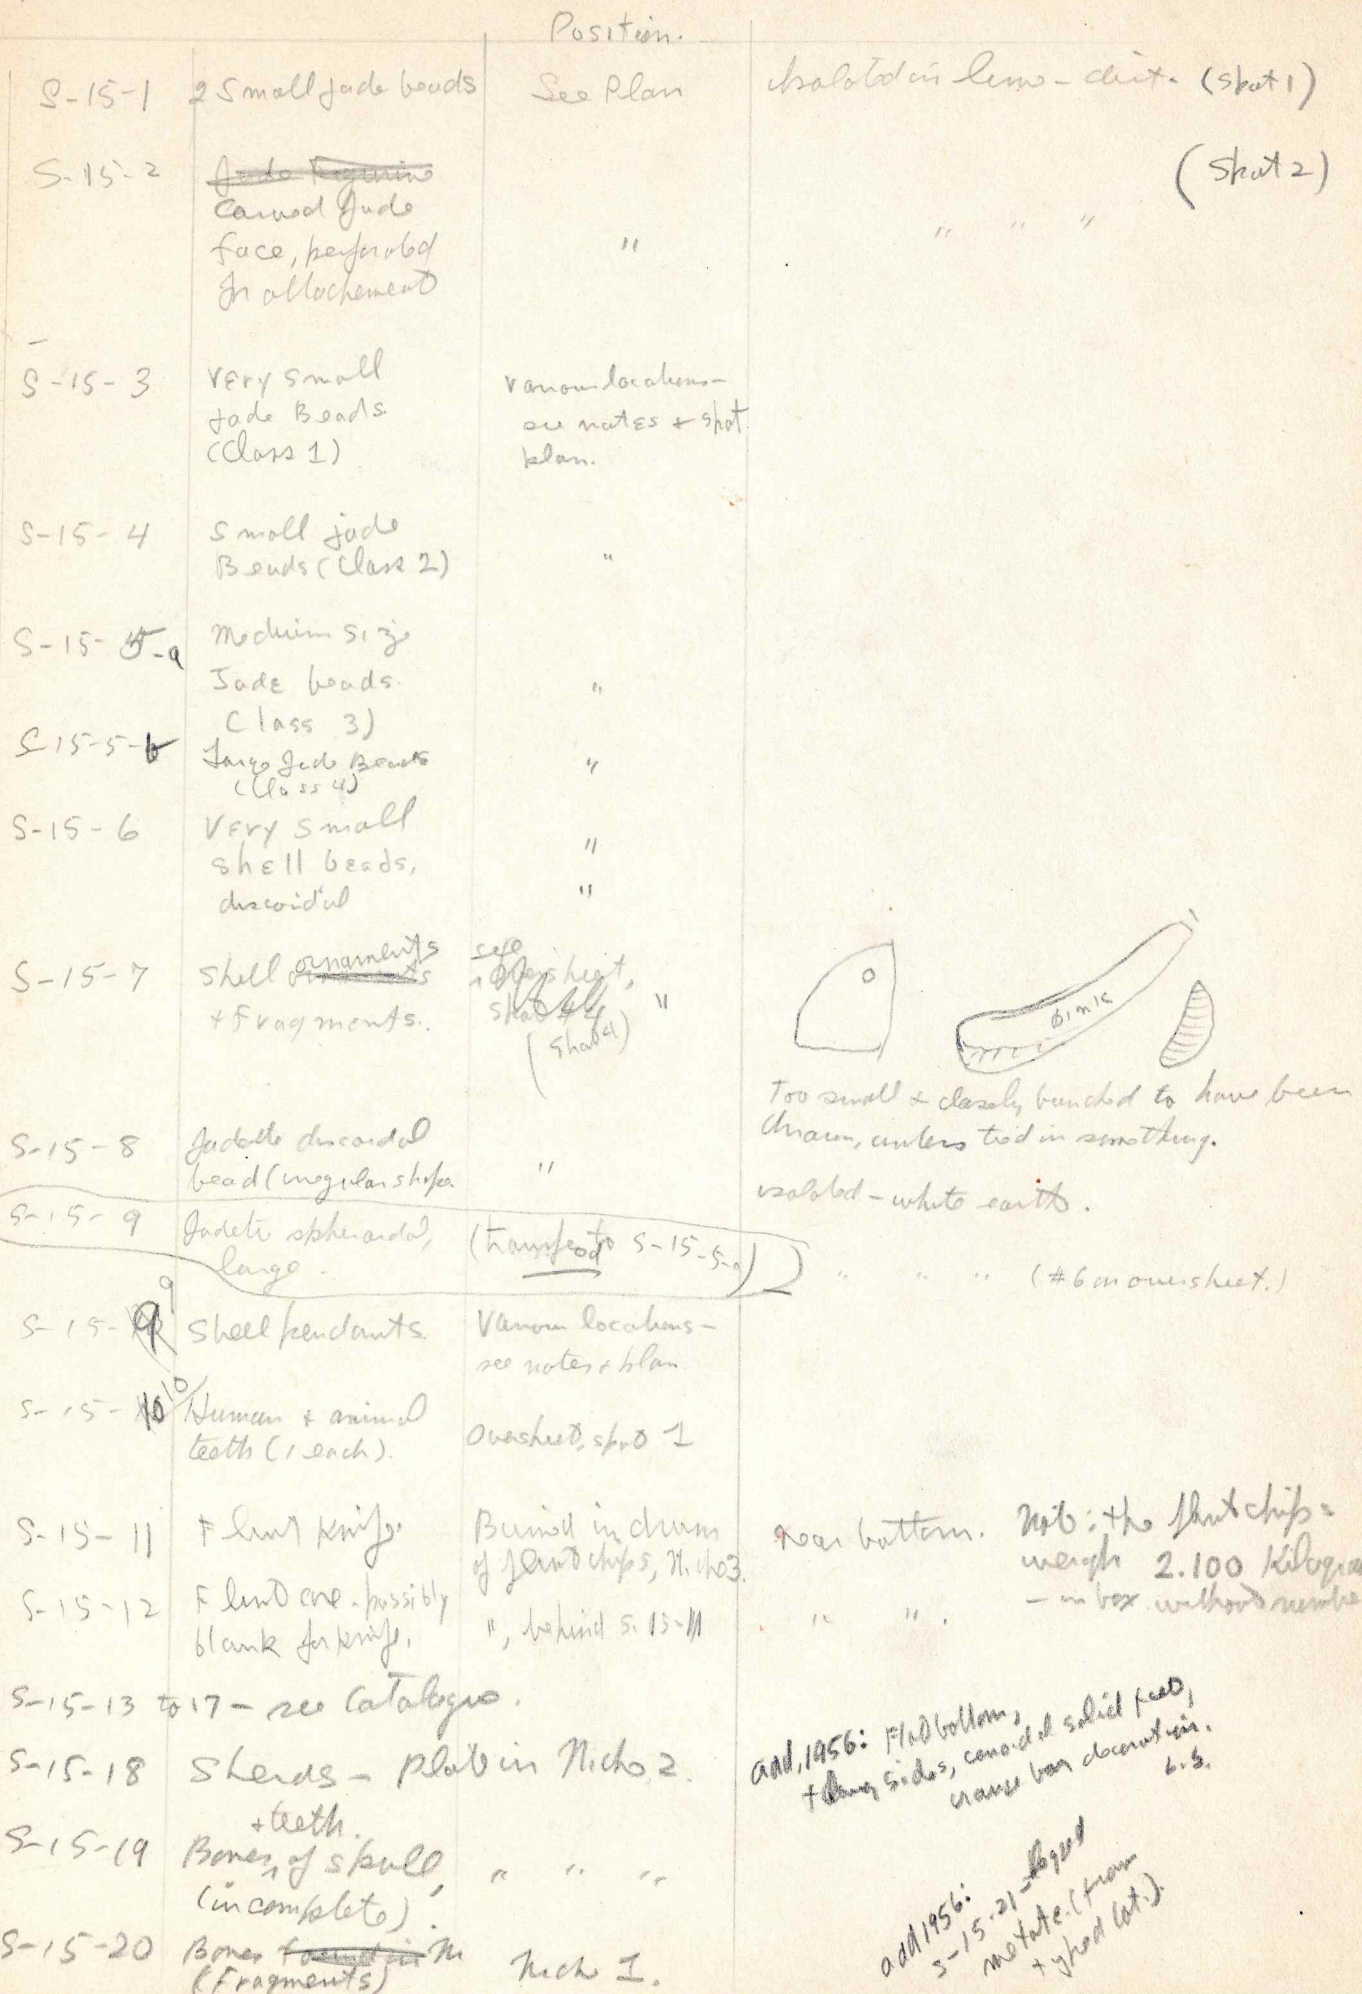 Position.
S-15-1 2 Small jade beads See Plan Isolated in lime-dirt. (Spot 1)
S-15-2 Jade Figurine (Spot 2)
Carved Jade
face, perforated " " " "
for attachement
S-15-3 Very small Various locations-
jade Beads. see notes + spot
(Class 1) plan.
S-15-4 Small jade
Beads (Class 2) "
S-15-5-a Medium size
Jade beads. "
(Class 3)
S-15-5-b Large Jade Beads "
(Class 4)
S-15-6 Very small
shell beads, "
discoidal "
S-15-7 Shell ornaments see oversheet, "
+ Fragments. (Spot 4)
5 1 mk
Too small & closely bunched to have been
drawn, unless tied in something.
S-15-8 Jadeite discoidal
bead (irregular shape "
isolated - white earth.
S-15-9 Jadeite spheroidal, (transferred to S-15-5-a)
large. " " " (#6 on oversheet.)
S-15-9 Shell pendants. Various locations-
see notes + plan.
S-15-10 Human + animal
teeth (1 each). Oversheet, spot 1
S-15-11 Flint knife. Buried in
of flint chips, Niche 3. near bottom. Note: the flint chips
weigh 2.100 Kilogram
- in box without number
S-15-12 Flint core - possibly
blank for knife. ", behind S-15-11 " ".
S-15-13 to 17 - see Catalogue.
S-15-18 Sherds - Plate in Niche 2.
add, 1956: Flat bottom,
flaring sides, conoidal solid feet,
orange decoration.
L.S.
S-15-19 Bones + teeth of skull, " " "
(incomplete).
S-15-20 Bones found in
(Fragments) Niche 1.
add 1956:
S-15-21 - legged
metate. (from
typed cat.).